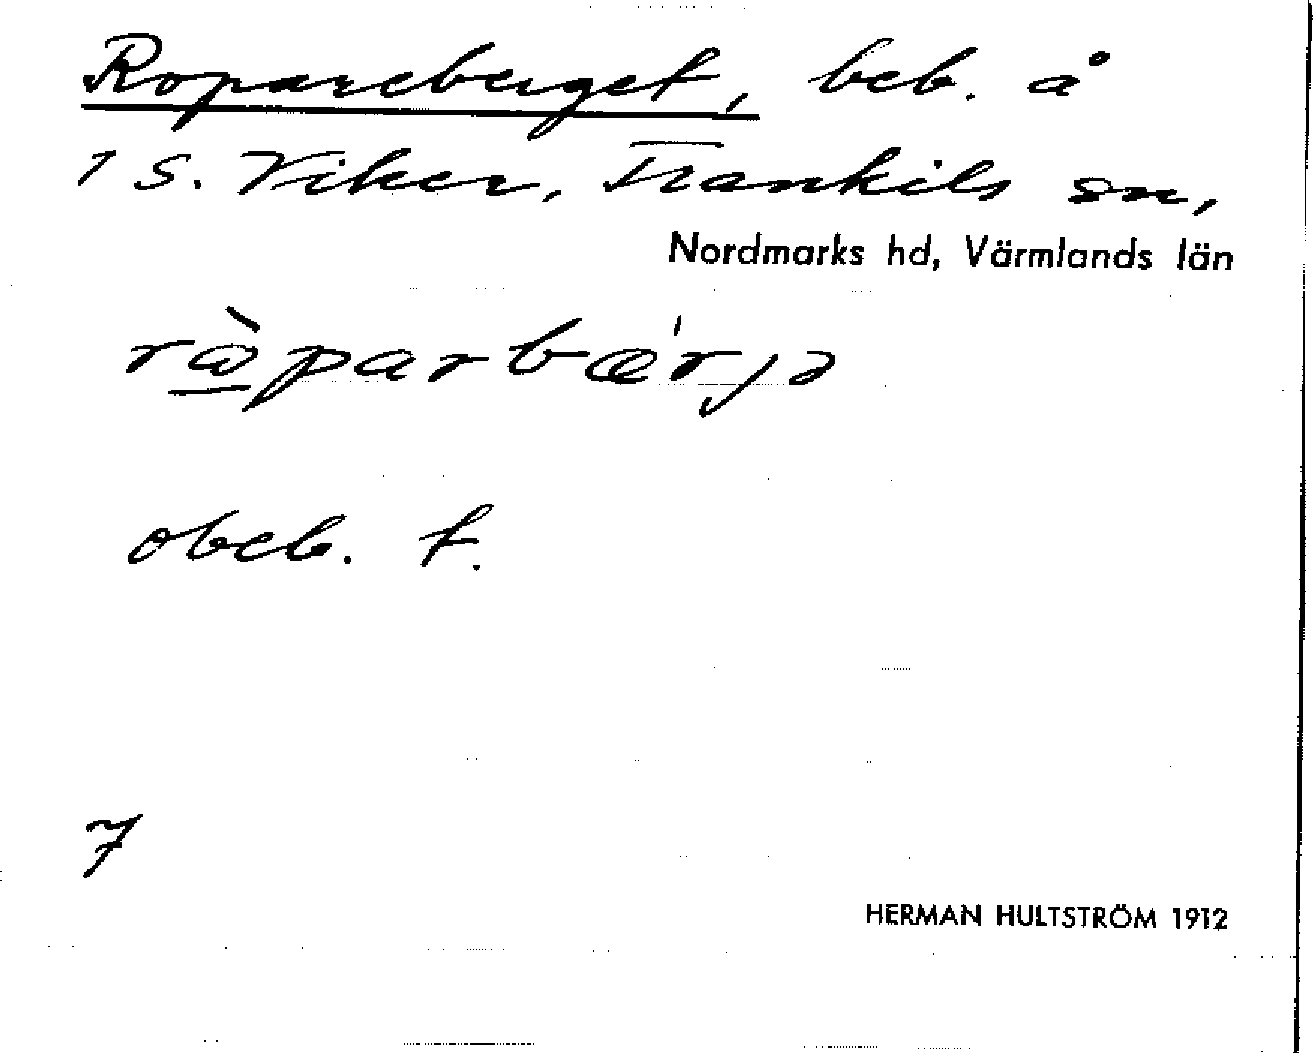 Ropareberget, beb. å
1 S. Viker, Trankils sn,
Nordmarks hd, Värmlands län
obeb. f.
7
HERMAN HULTSTRÖM 1912